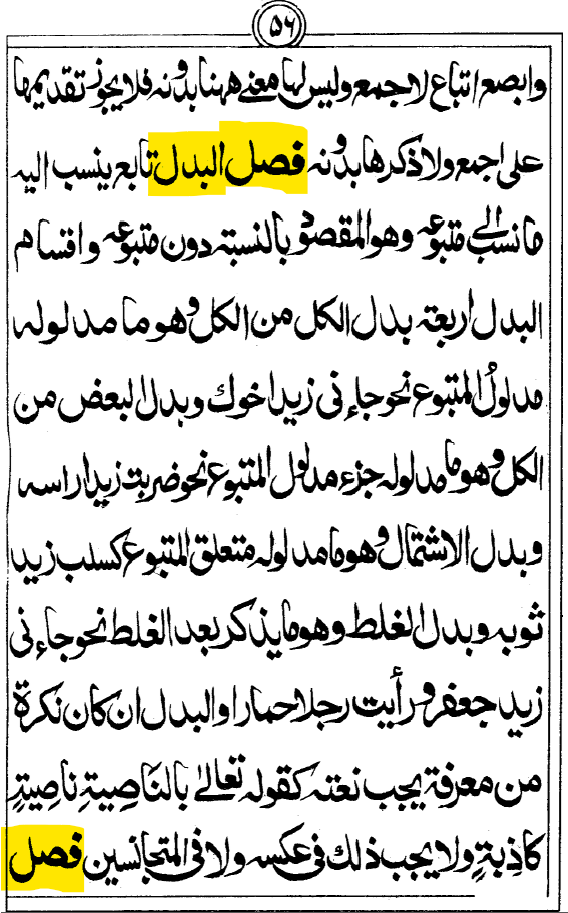 ۵۶
وابصع اتباع لاجمع وليس لها معنے ههنا بدونه فلا يجوز تقديمها
علی اجمع ولا ذكرها بدونه فصل البدل تابع ينسب اليه
ما نسب الے متبوعه وهو المقصود بالنسبة دون متبوعه واقسام
البدل اربعة بدل الكل من الكل وهو ما مدلوله
مدلولُ المتبوع نحو جاءنی زيد اخوك وبدل البعض من
الكل وهو ما مدلوله جزء مدلول المتبوع نحو ضربت زيدا راسه
وبدل الاشتمال وهو ما مدلوله متعلق المتبوع كسلب زيد
ثوبه وبدل الغلط وهو ما يذكر بعد الغلط نحو جاءنی
زيد جعفر ورأيت رجلا حمارا والبدل ان كان نكرة
من معرفة يجب نعته كقوله تعالےٰ بالنَاصِيةِ ناصِيَةٍ
كاذِبةٍ ولا يجب ذلك فی عكسه ولا فی المتجانسين فصل